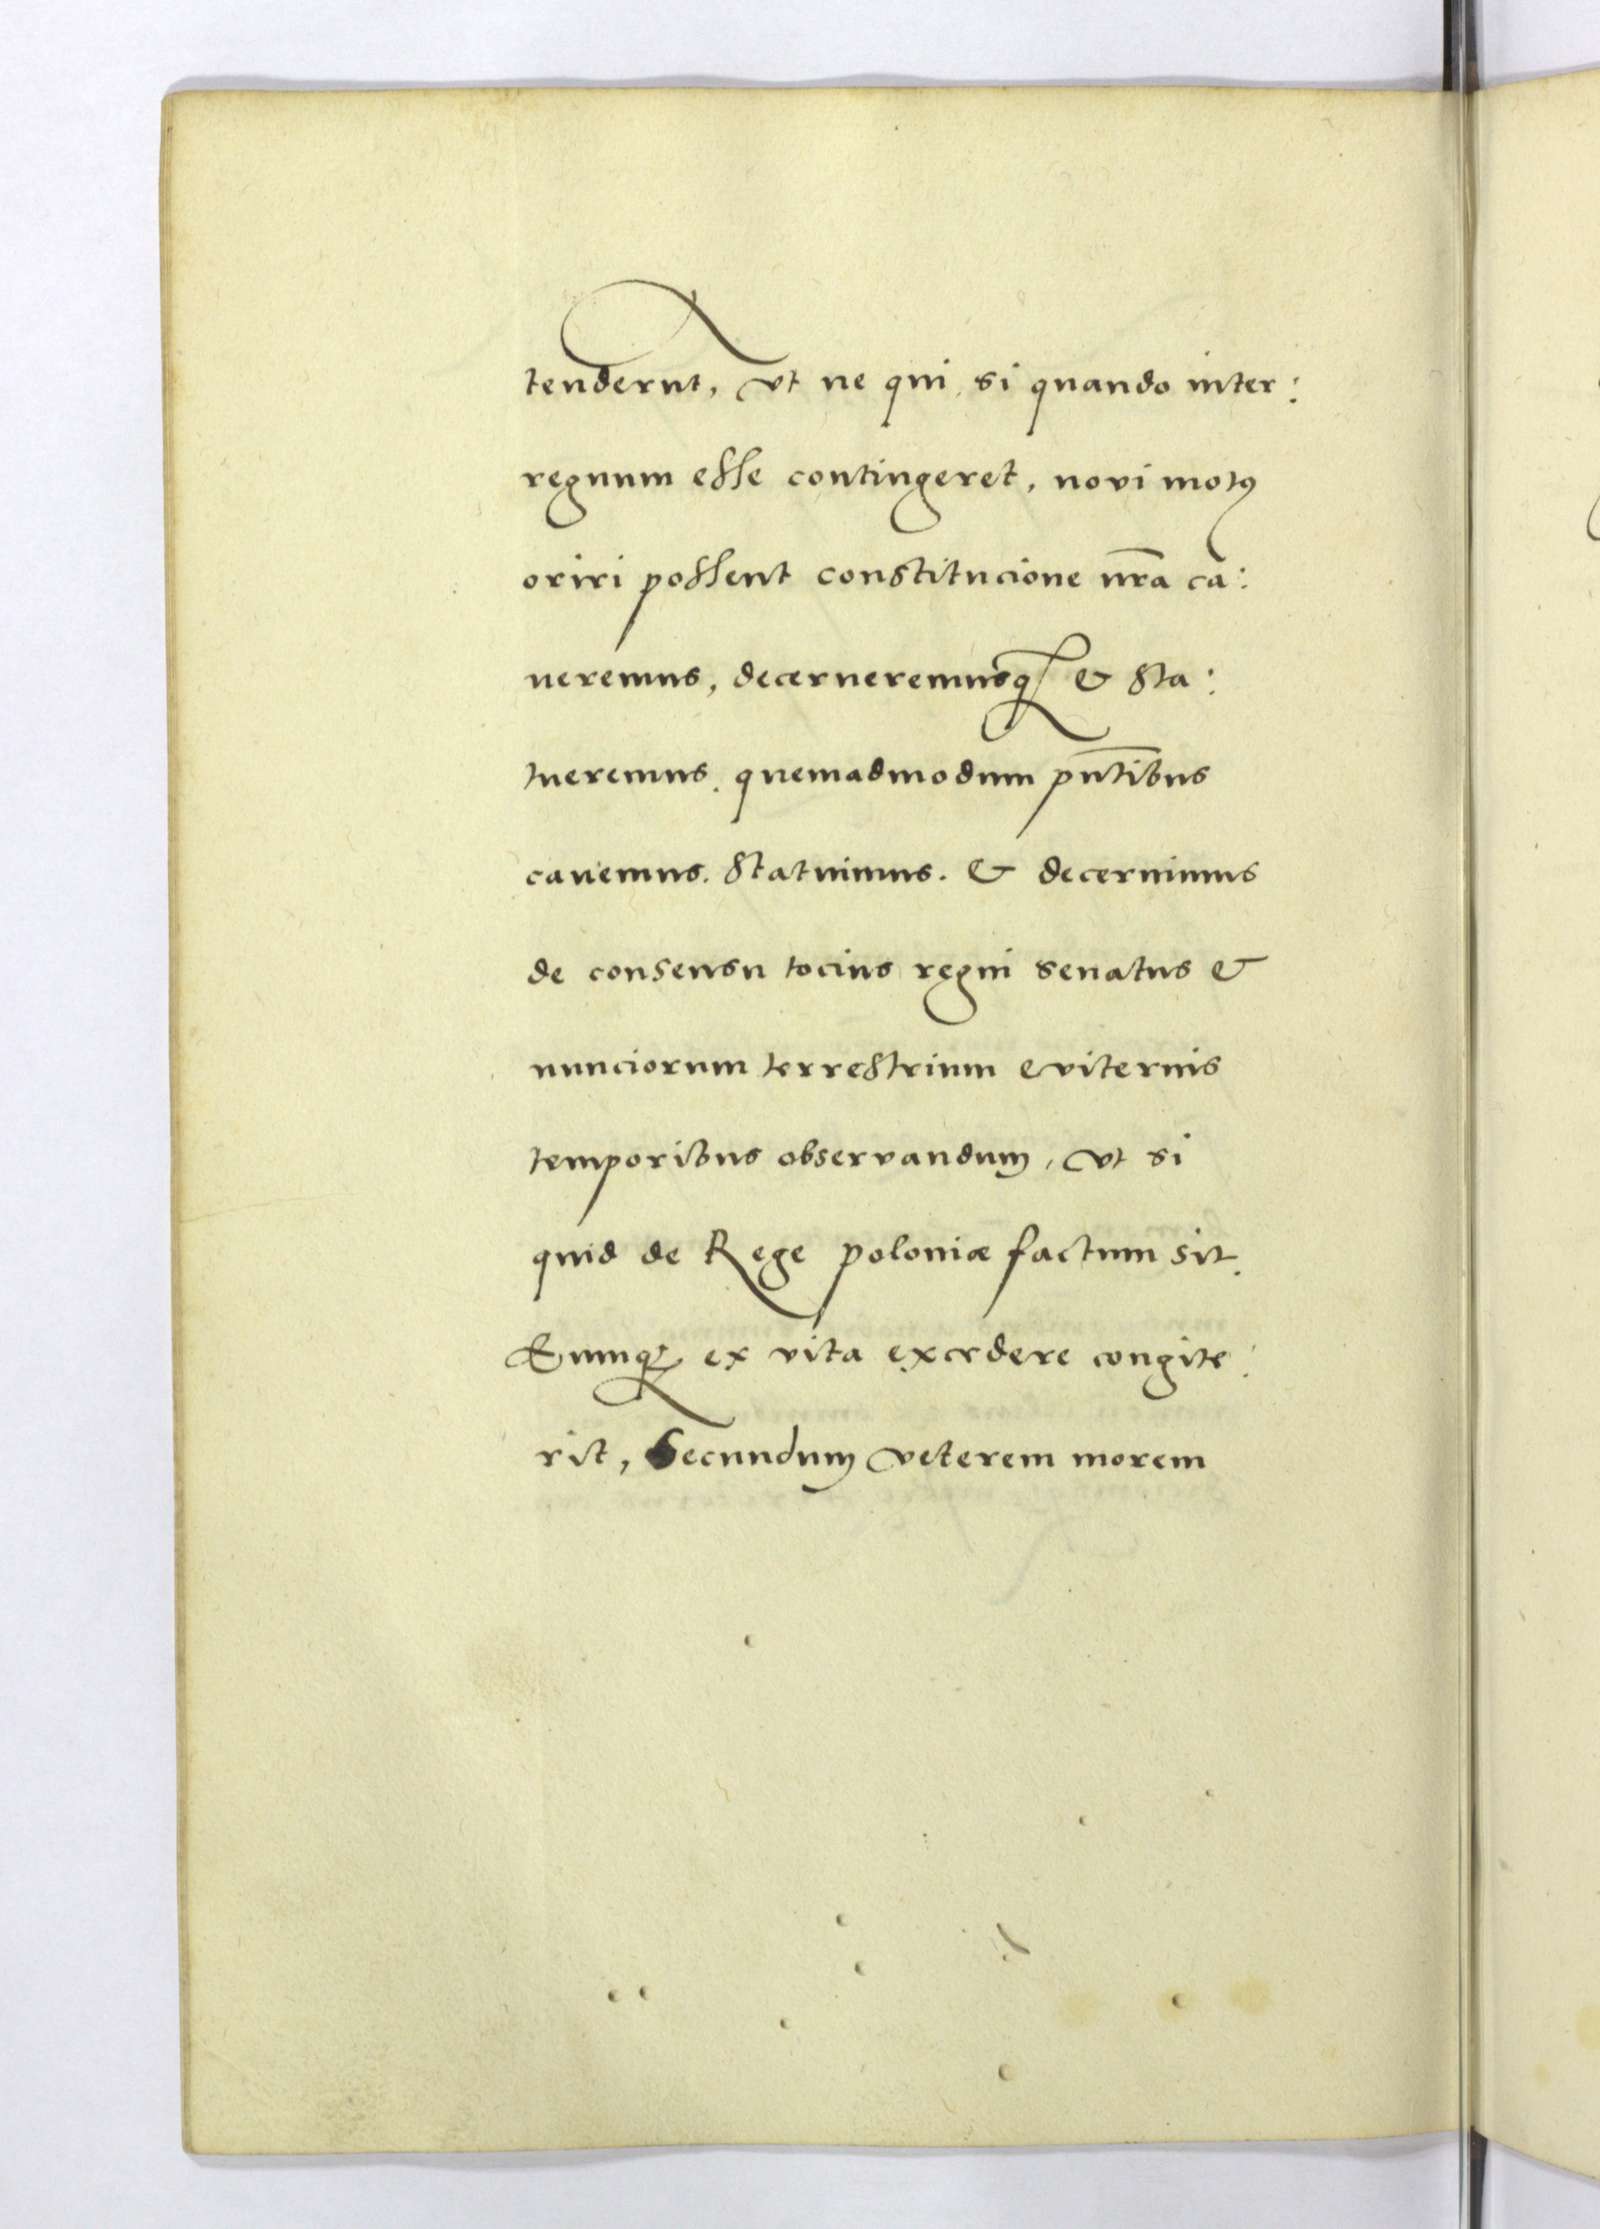 tenderent, vt ne qui, si quando inter:
regnum esse contingeret, novi motꝰ
oriri possent constitucione nr̄a ca:
ueremus, decerneremusqꝫ & sta:
tueremus. quemadmodum pn̄tibus
cauemus. statuimus. & decernimus
de consensu tocius regni senatus &
nunciorum terrestrium eviternis
temporibus observandum, vt si
quid de Rege poloniæ factum sit.
Eumqꝫ ex vita excedere congite:
rit, Secundum veterem morem